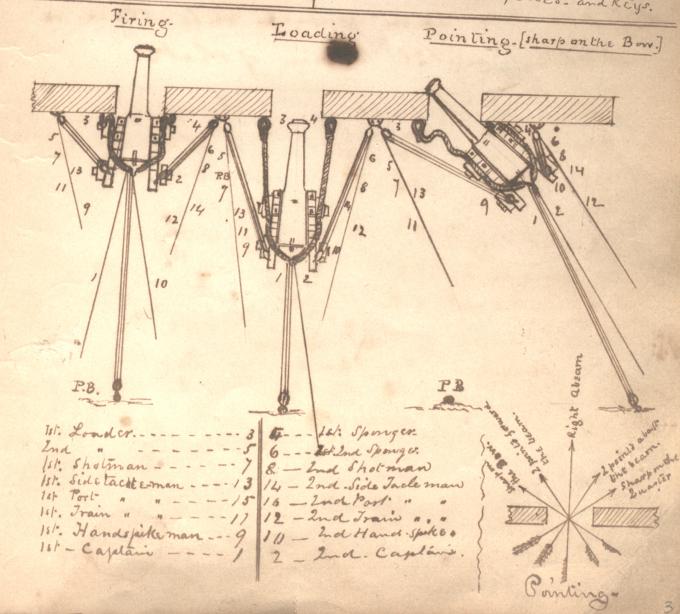 and Keys.
Firing.
Loading
Pointing-[sharp on the Bow.]
3 4 3 4 3 4
5 6 5 6 5 6
7 13 2 8 RB 7 8 7 13 8 10 14
11 14 13 12 11 9 12
9 12 11 9 10 1 2
1 10 1 2
P.B. PB
1st. Loader - - - - 3
2nd " - - - - 5
1st. Shotman - - - - 7
1st. Sidetackleman - - 13
1st Port " " - - 15
1st. Train " " - - - 11
1st. Handspikeman - - - 9
1st - Captain - - - - 1
4 - - - 1st. Sponger
6 - - - 2nd Sponger.
8 - - 2nd Shotman
14 - 2nd. Side Tacleman
16 - - 2nd Port " "
12 - - 2nd Train " "
10 - - 2nd Hand-Spike
2 - - 2nd- Captain.
Right Abeam
2 points forward
the beam.
Sharp on
the Bow.
2 points abaft
the beam.
Sharp on the
Quarter
Pointing-
3